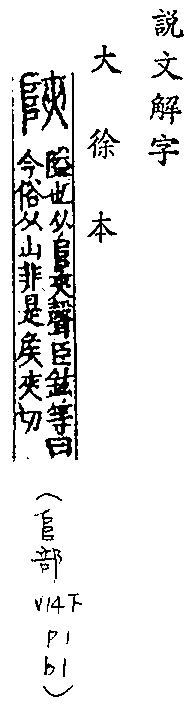 説文解字
大徐本
陜
隘也从𨸏夾聲臣鉉等曰
今俗从山非是矦夾切
(𨸏部
V14下
p1
b1)